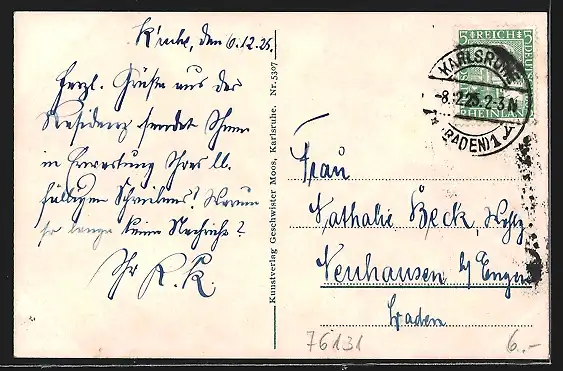 K'ruhe, den 6.12.25.
Herzl. Grüße aus der
Residenz sendet Ihnen
in Erwartung Ihres ll.
fälligen Schreibens! Warum
so lange keine Nachricht?
Ihr R. K.
Kunstverlag Geschwister Moos, Karlsruhe. Nr. 5307
5 REICH 5
DEUTSCHES
RHEINLAN
KARLSRUHE
-8.12.25.2-3N
(BADEN) 1
Frau
Nathalie Beck,
Neuhausen b/ Engen
Baden
76131
6.-